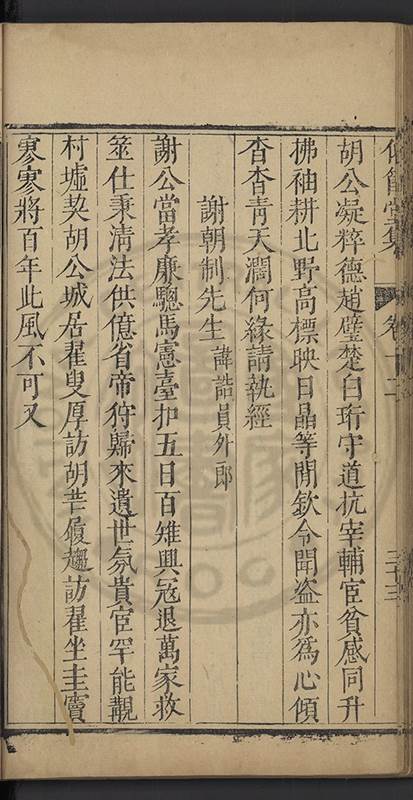 胡公凝粹德趙璧楚白珩守道抗宰輔宦貧感同升
拂袖耕北野高標映日晶等閒欽令聞盗亦爲心傾
杳杳青天濶何緣請執經
謝朝制先生諱誥員外郎
謝公當孝廉驄馬憲臺扣五日百雉興冦退萬家救
筮仕秉淸法供億省帝狩歸來遺世氛貴宦罕能覯
村墟契胡公城居翟叟厚訪胡芒履趨訪翟坐圭竇
寥寥將百年此風不可又